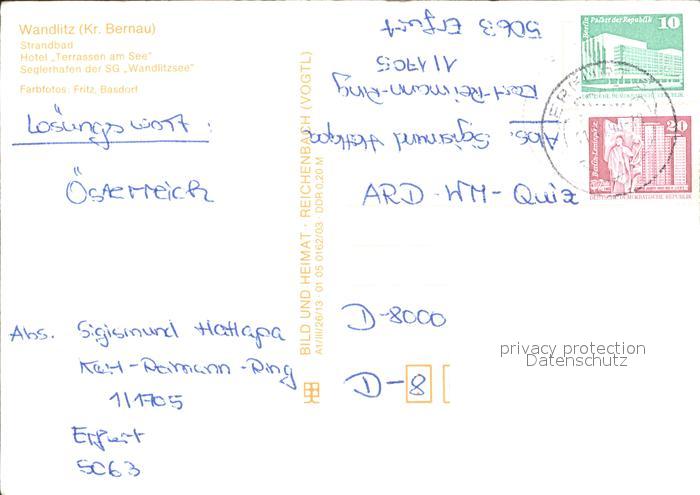 Wandlitz (Kr. Bernau)
Strandbad
Hotel „Terrassen am See"
Seglerhafen der SG „Wandlitzsee"
Farbfotos: Fritz, Basdorf
Lösungswort:
Österreich
Abs. Sigismund Hattapa
Karl-Reimann-Ring
1/1705
Erfurt
5063
BILD UND HEIMAT · REICHENBACH (VOGTL)
A1/III/26/13 · 01 05 0162/03 · DDR 0,20 M
Abs. Sigismund Hattapa
Karl-Reimann-Ring
1/1705
5063 Erfurt
Berlin Palast der Republik
10
20
Berlin-Leninplatz
DEUTSCHE DEMOKRATISCHE REPUBLIK
ARD-WM-Quiz
D-8000
D-8
privacy protection
Datenschutz